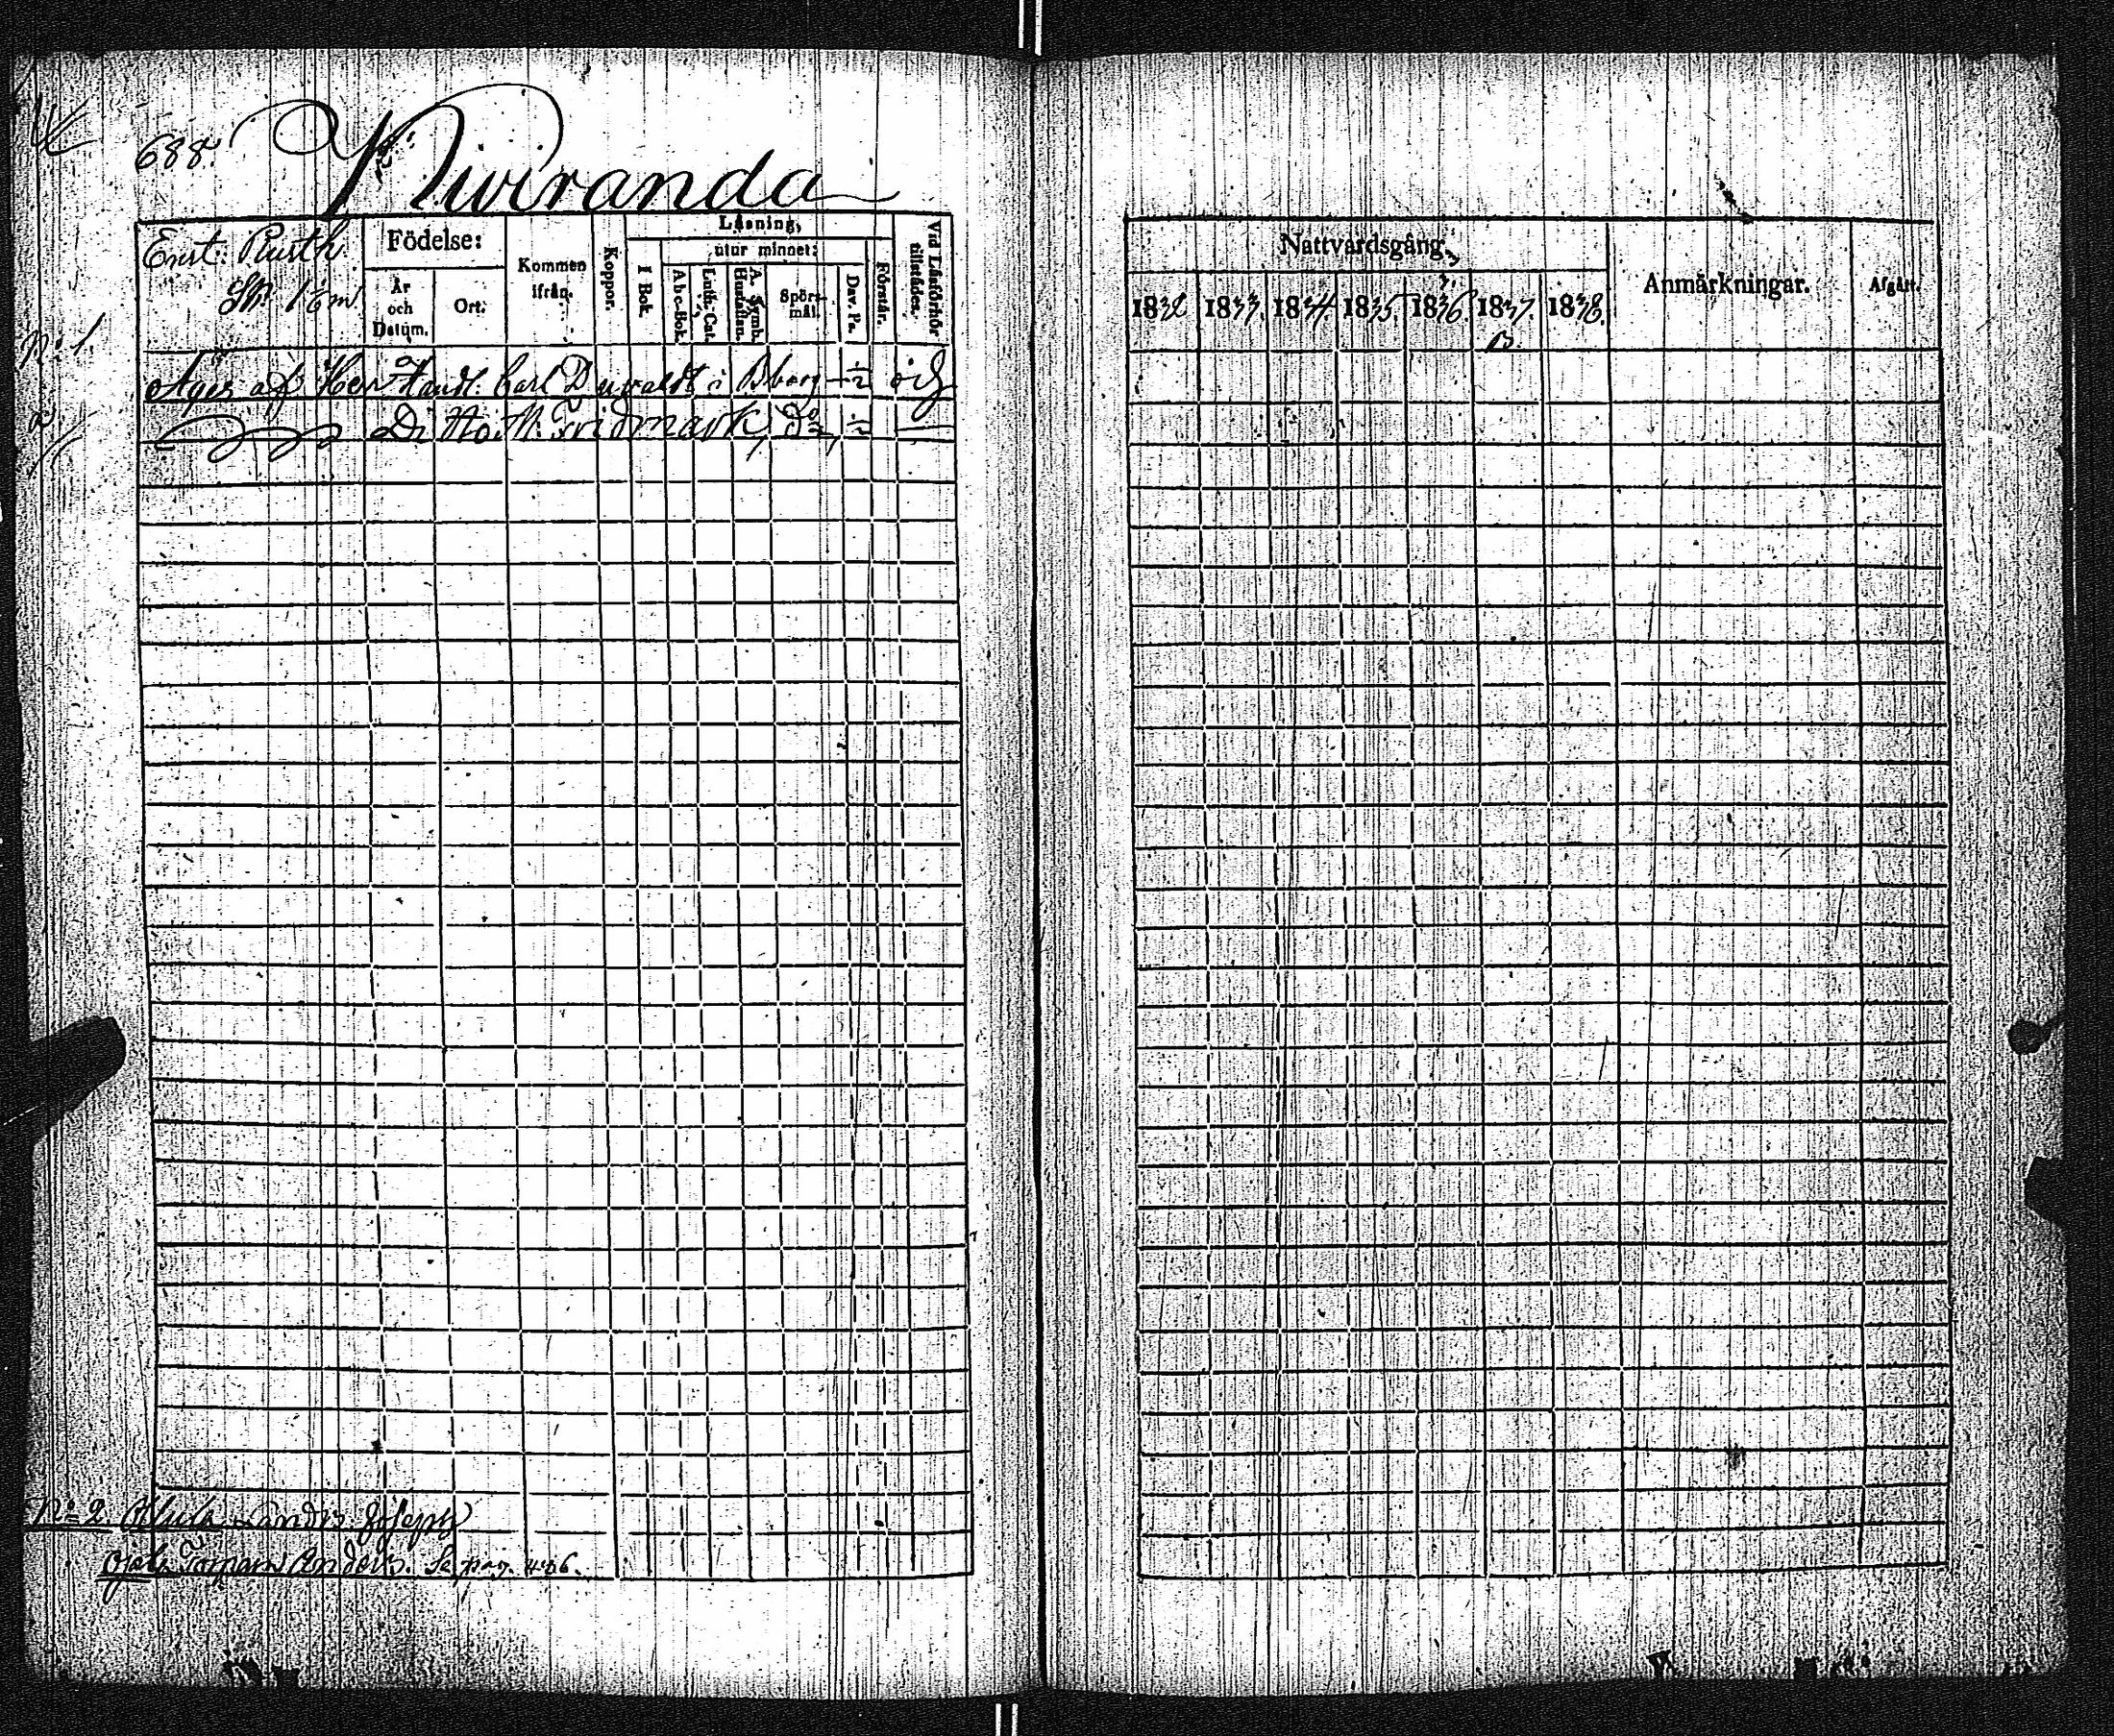 688.
Kiviranda
Enst. Rusth
Födelse:
År och Datum.
Ort.
Kommen ifrån.
Koppor.
Läsning,
I Bok.
utur minnet:
Abc-Bok.
Luth. Cat.
A. Symb. Hustaflan.
Spörsmål.
Dav. Ps.
Förstår.
Vid Läsförhör tillstädes.
N:o 1.
Äges af Herr Handl. Carl i Bborg ½
2
Ditto M. Tvidmark, d:o, ½
N:o 2 Anders Joseph
Ojala Torparn Anders. Se pag.
Nattvardsgång,
1832
1833.
1834
1835.
1836.
1837.
1838.
Anmärkningar.
Afgått.